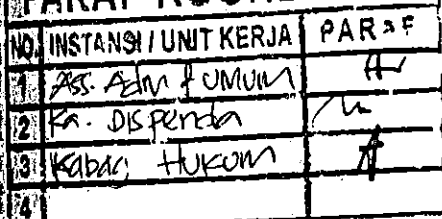 PARAF KOORD
NO. INSTANSI / UNIT KERJA PARAF
1 Ass. Adm & Umum
2 Ka. Dispenda
3 Kabag Hukum
4